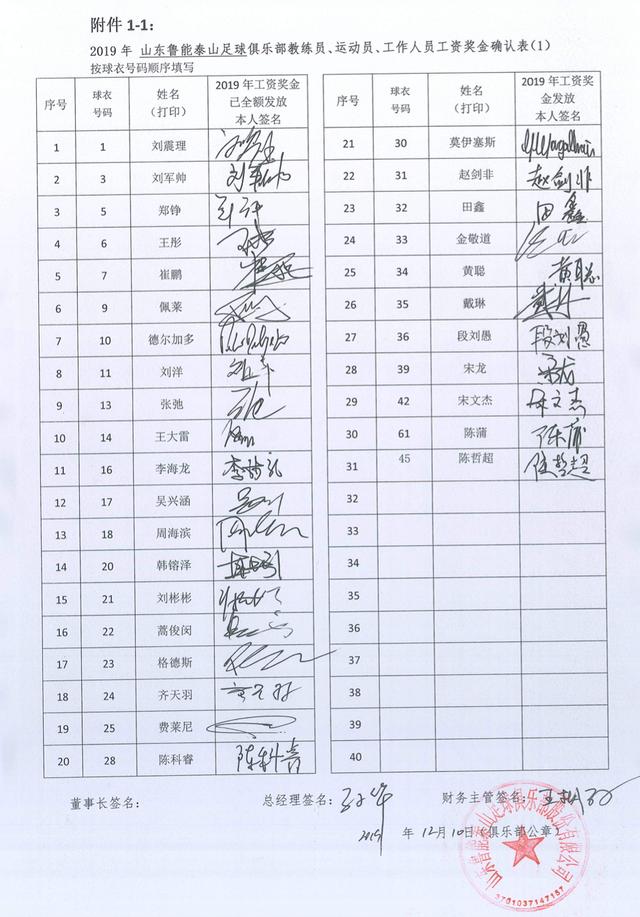 附件 1-1：
2019 年 山东鲁能泰山足球俱乐部教练员、运动员、工作人员工资奖金确认表（1）
按球衣号码顺序填写
序号 球衣号码 姓名（打印） 2019 年工资奖金已全额发放本人签名
1 1 刘震理
2 3 刘军帅 刘军帅
3 5 郑铮 郑铮
4 6 王彤
5 7 崔鹏
6 9 佩莱
7 10 德尔加多
8 11 刘洋
9 13 张弛
10 14 王大雷
11 16 李海龙 李海龙
12 17 吴兴涵
13 18 周海滨
14 20 韩镕泽
15 21 刘彬彬
16 22 蒿俊闵
17 23 格德斯
18 24 齐天羽 齐天羽
19 25 费莱尼
20 28 陈科睿 陈科睿
序号 球衣号码 姓名（打印） 2019 年工资奖金发放本人签名
21 30 莫伊塞斯
22 31 赵剑非 赵剑非
23 32 田鑫 田鑫
24 33 金敬道
25 34 黄聪 黄聪
26 35 戴琳 戴琳
27 36 段刘愚 段刘愚
28 39 宋龙 宋龙
29 42 宋文杰 宋文杰
30 61 陈蒲 陈蒲
31 45 陈哲超 陈哲超
32
33
34
35
36
37
38
39
40
董事长签名： 总经理签名： 财务主管签名：
2019 年 12月10日（俱乐部公章）
山东鲁能泰山足球俱乐部股份有限公司
3701037147157